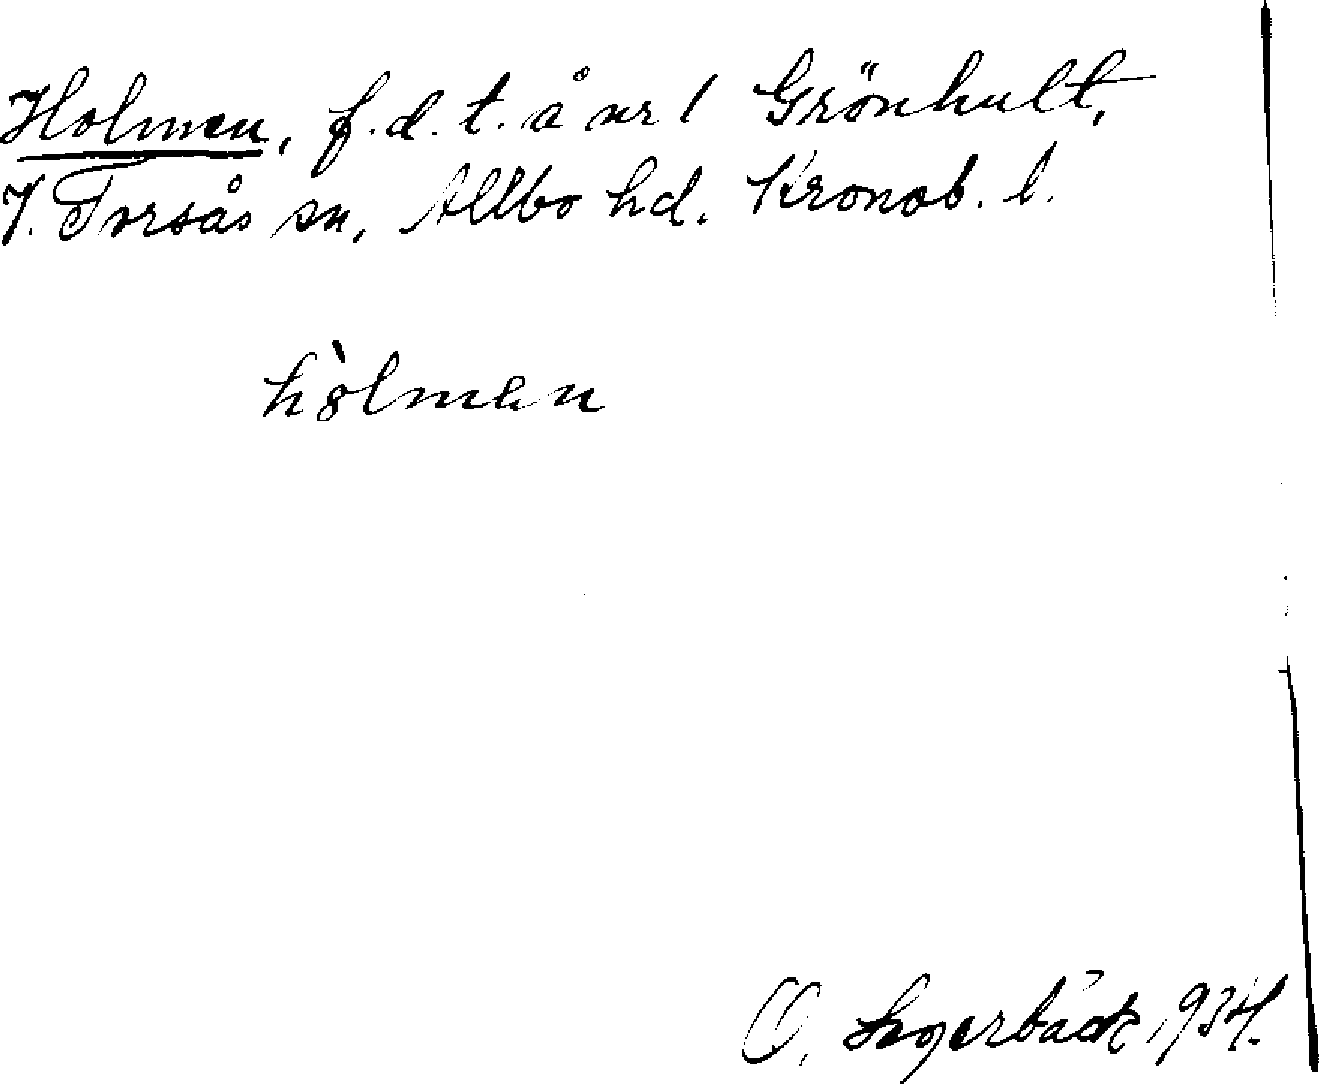 Holmen, f.d. t. å nr 1 Grönhult,
V. Torsås sn, Allbo hd. Kronob. l.
hòlmen
O. Lagerbäck 1934.